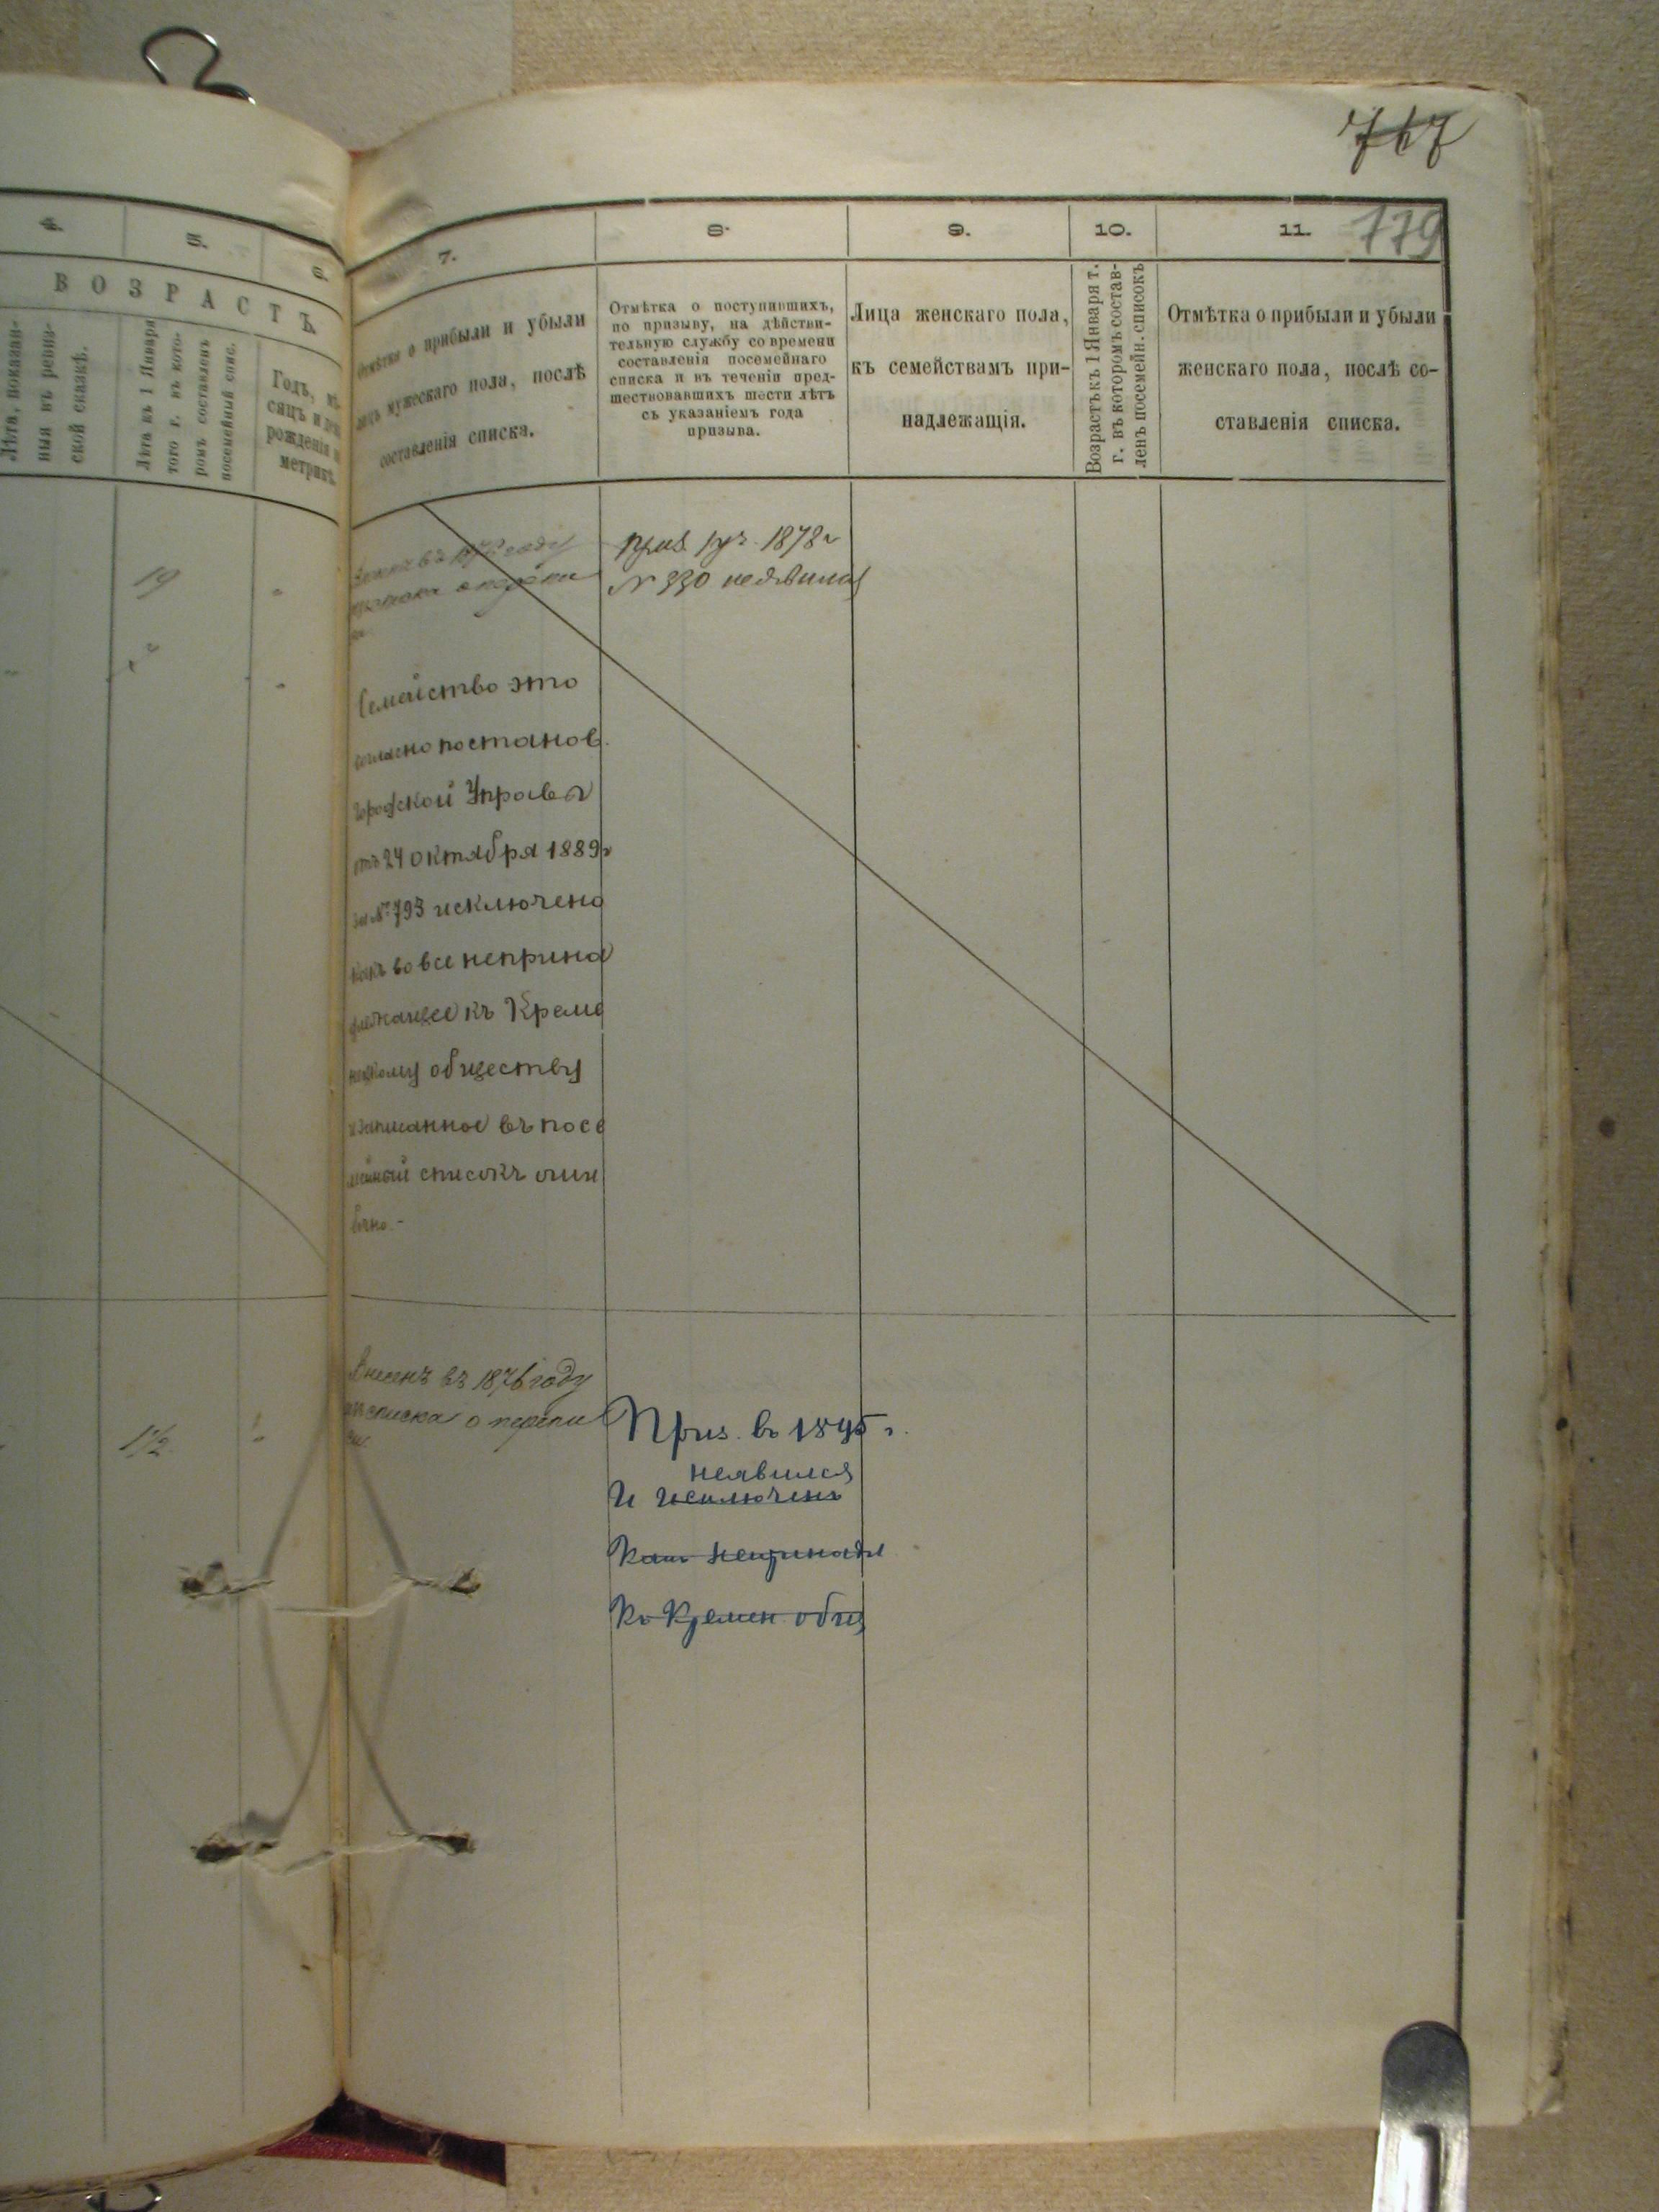 767
179
4.
5.
6.
7.
8.
9.
10.
11.
ВОЗРАСТЪ.
Лѣта, показан-
ныя въ ревиз-
ской сказкѣ.
Лѣта къ 1 Января
того г. въ кото-
ромъ составленъ
посемейный спис.
Годъ, мѣ-
сяцъ и день
рожденія
метрик.
Отмѣтка о прибыли и убыли
лицъ мужескаго пола, послѣ
составленія списка.
Отмѣтка о поступившихъ,
по призыву, на дѣйстви-
тельную службу со времени
составленія посемейнаго
списка и въ теченіи пред-
шествовавшихъ шести лѣтъ
съ указаніемъ года
призыва.
Лица женскаго пола,
къ семействамъ при-
надлежащія.
Возрастъ къ 1 Января т.
г. въ которомъ состав-
ленъ посемейн. списокъ
Отмѣтка о прибыли и убыли
женскаго пола, послѣ со-
ставленія списка.
19
году
Приз. 1878 г
N 330 неявился
Семейство это
согласно постанов.
городской Управы
отъ 24 октября 1889 г
за № 793 исключено
какъ вовсе неприна
длежащее къ Креме
нецкому обществу
и записанное въ посе
мейный списокъ оши
бочно.-
Внесенъ въ 1876 году
изъ списка о перепи
си
1½
Приз. въ 1895 г.
неявился
И исключенъ
какъ непринадл
Къ Кремен. общ